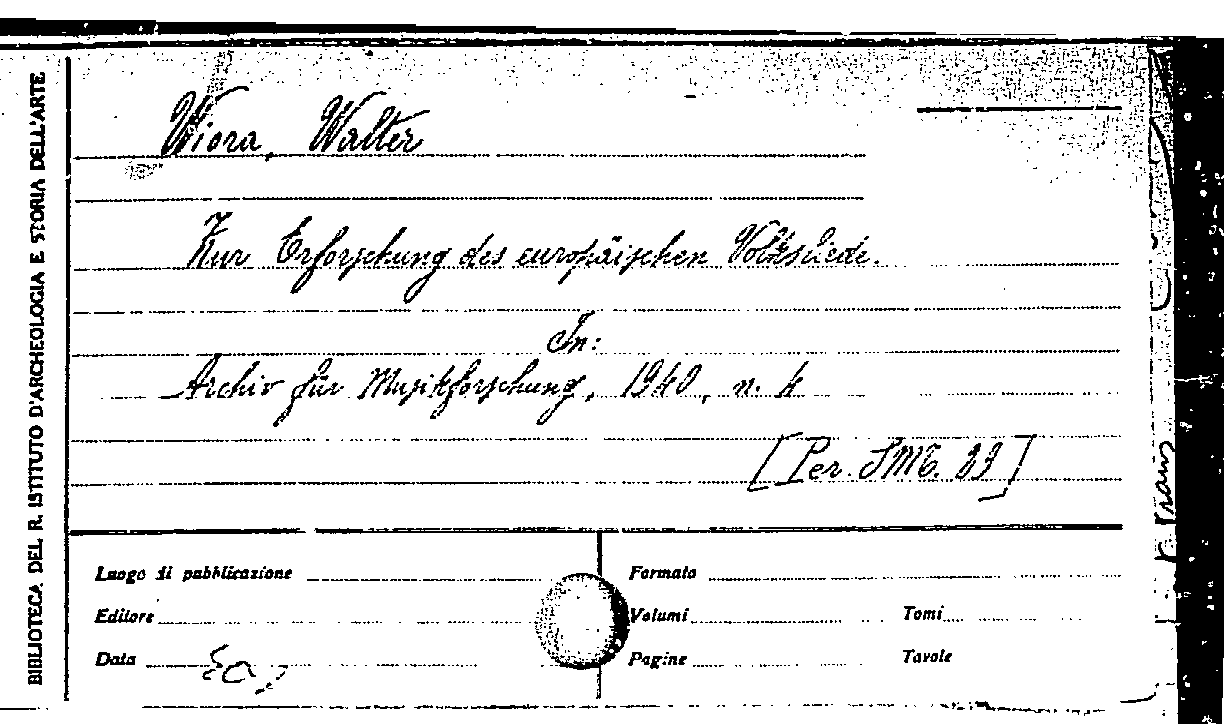 BIBLIOTECA DEL R. ISTITUTO D'ARCHEOLOGIA E STORIA DELL'ARTE
Wiora, Walter
Zur Erforschung des europäischen Volksliede.
In:
Archiv für Musikforschung, 1940, n. 4
[Per. SMG. 23]
Luogo di pubblicazione
Formato
Editore
Volumi
Tomi
Data
Pagine
Tavole